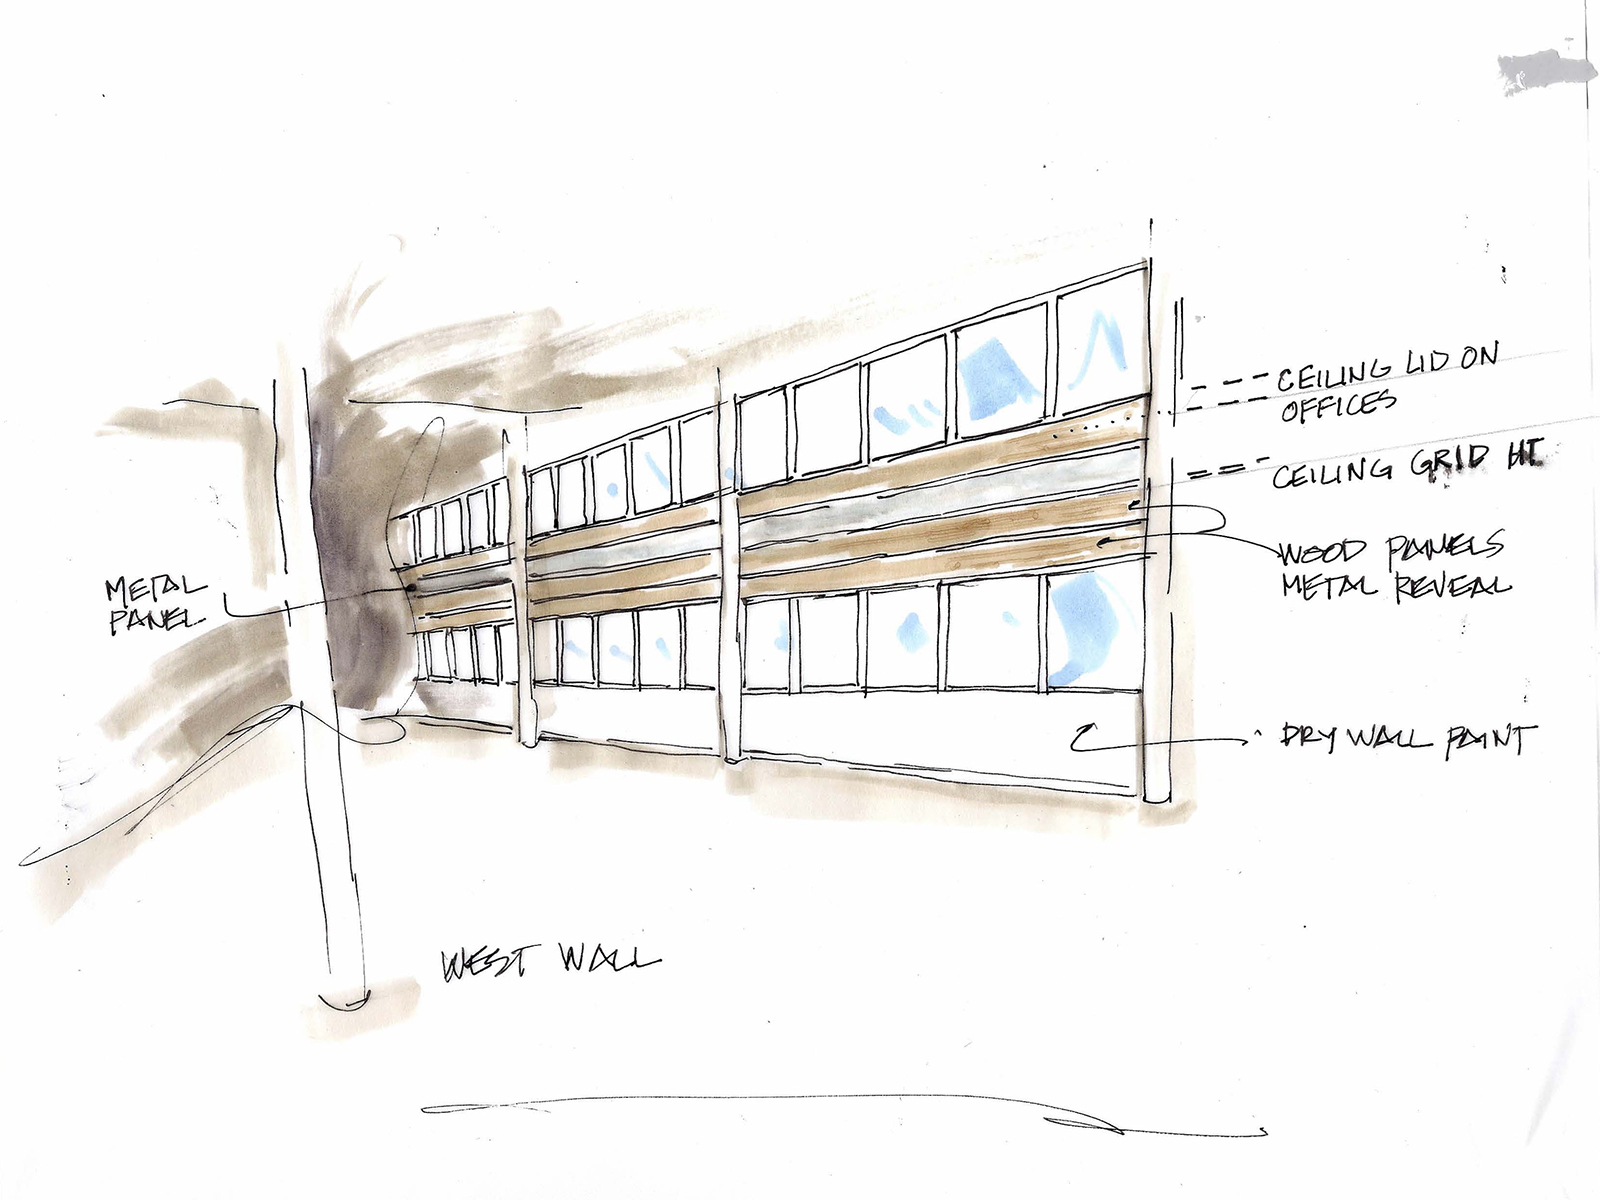 CEILING LID ON
OFFICES
CEILING GRID HT
WOOD PANELS
METAL REVEAL
METAL
PANEL
DRY WALL PAINT
WEST WALL